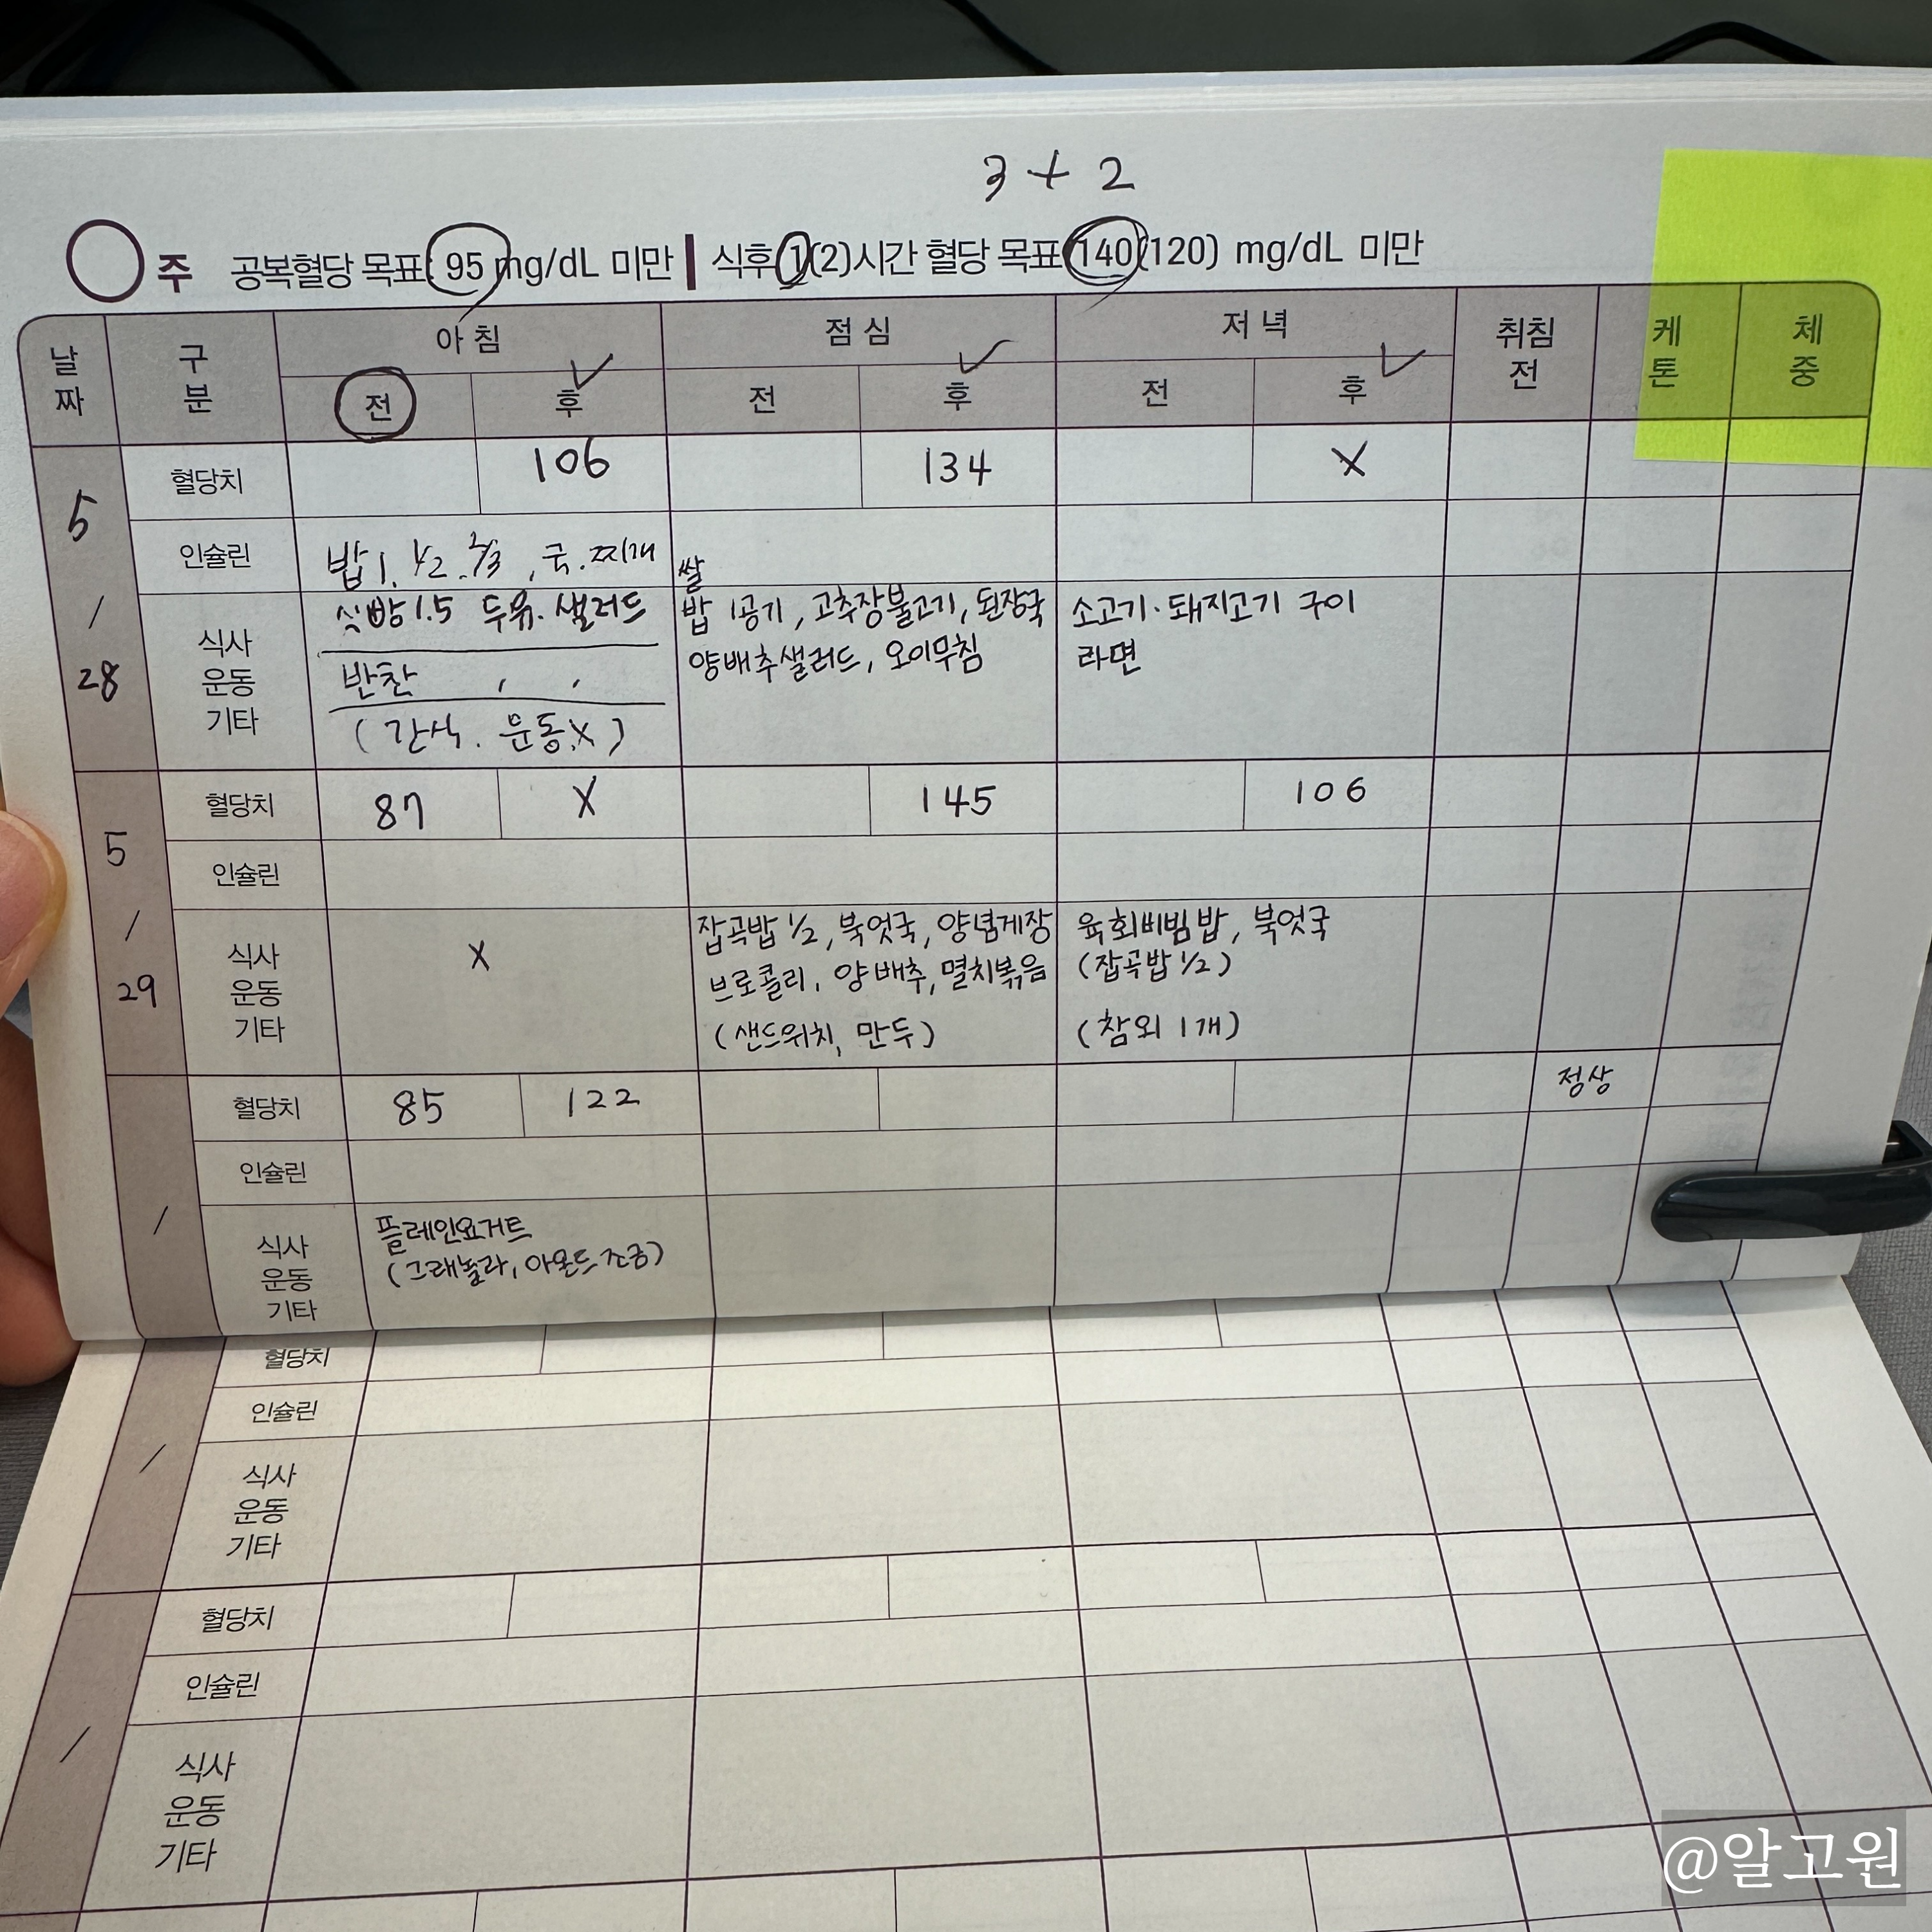 3 + 2
주 공복혈당 목표: 95 mg/dL 미만 | 식후 1(2)시간 혈당 목표 140(120) mg/dL 미만
날짜 구분 아침 점심 저녁 취침전 케톤 체중
전 후 전 후 전 후
5/28
혈당치 106 134 X
인슐린
밥 1, 1/2, 2/3, 국.찌개
식빵1.5 두유.샐러드
반찬 , ,
(간식. 운동X)
쌀
밥 1공기, 고추장불고기, 된장국
양배추샐러드, 오이무침
소고기.돼지고기 구이
라면
식사
운동
기타
5/29
혈당치 87 X 145 106
인슐린
식사
운동
기타
X
잡곡밥 1/2, 북엇국, 양념게장
브로콜리, 양배추, 멸치볶음
(샌드위치, 만두)
육회비빔밥, 북엇국
(잡곡밥 1/2)
(참외 1개)
/
혈당치 85 122 정상
인슐린
식사
운동
기타
플레인요거트
(그래놀라, 아몬드 조금)
혈당치
인슐린
/
식사
운동
기타
혈당치
인슐린
/
식사
운동
기타
@알고원